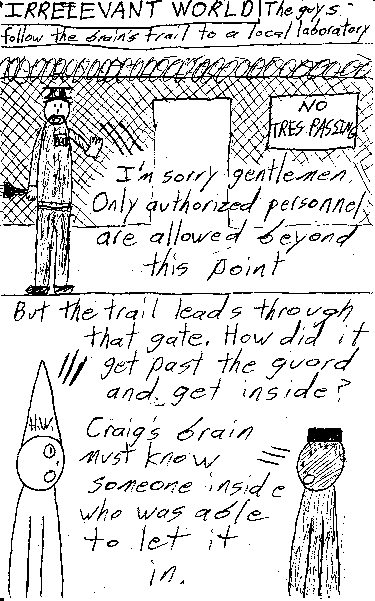 IRRELEVANT WORLD The guys
follow the brain's trail to a local laboratory
NO
TRES PASSING
I'm sorry gentlemen.
Only authorized personnel
are allowed beyond
this point
But the trail leads through
that gate. How did it
get past the guard
and get inside?
H.W.
Craigs brain
must know
someone inside
who was able
to let it
in.